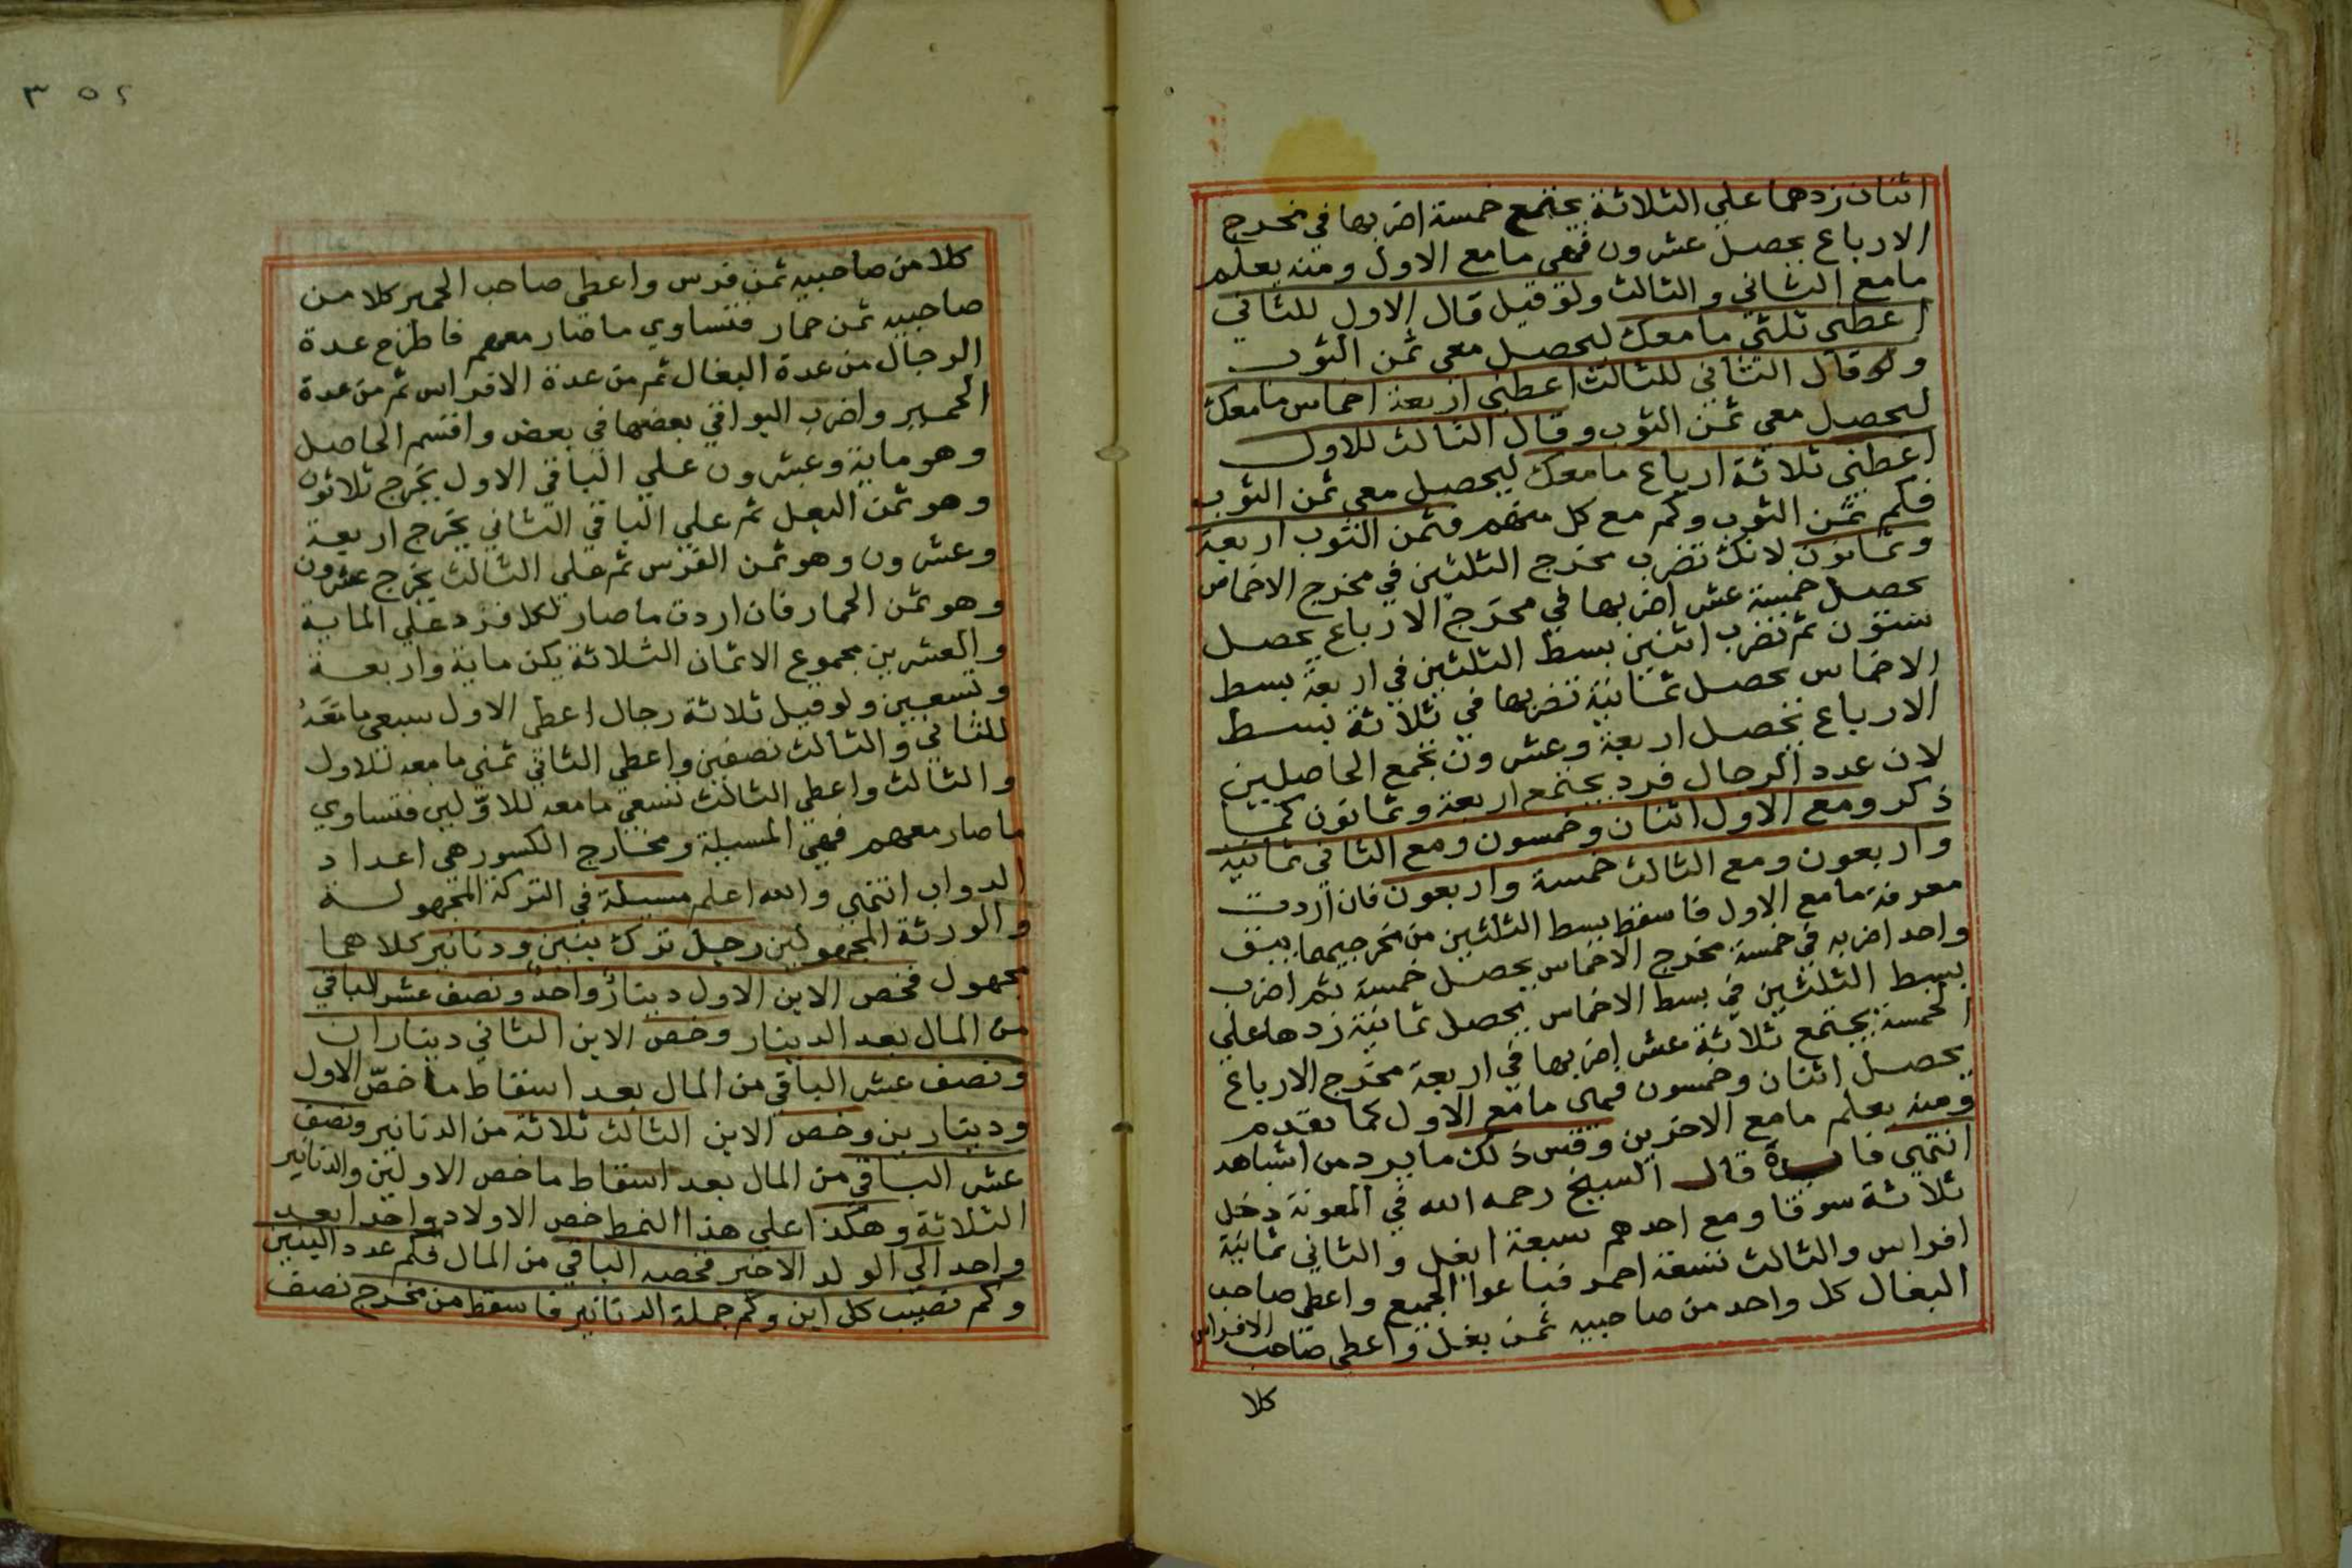 اثنان زدهما علي الثلاثة يجتمع خمسة اضربها في مخرج
الارباع يحصل عشرون فهي مامع الاول ومنه يعلم
مامع الثاني والثالث ولو قيل قال الاول للثاني
اعطني ثلثي مامعك ليحصل معي ثمن الثوب
ولو قال الثاني للثالث اعطني اربعة اخماس مامعك
ليحصل معي ثمن الثوب وقال الثالث للاول
اعطني ثلاثة ارباع مامعك ليحصل معي ثمن الثوب
فكم ثمن الثوب وكم مع كل منهم فثمن الثوب اربعة
وثمانون لانك تضرب مخرج الثلثين في مخرج الاخماس
يحصل خمسة عشر اضربها في مخرج الارباع يحصل
ستون ثم تضرب اثنين بسط الثلثين في اربعة بسط
الاخماس يحصل ثمانية تضربها في ثلاثة بسط
الارباع تحصل اربعة وعشرون تجمع الحاصلين
لان عدد الرجال فرد يجتمع اربعة وثمانون كما
ذكر ومع الاول اثنان وخمسون ومع الثاني ثمانية
واربعون ومع الثالث خمسة واربعون فان اردت
معرفة مامع الاول فاسقط بسط الثلثين من مخرجيهما يبقى
واحد اضربه في خمسة مخرج الاخماس يحصل خمسة ثم اضرب
بسط الثلثين في بسط الاخماس يحصل ثمانية زدها علي
الخمسة يجتمع ثلاثة عشر اضربها في اربعة مخرج الارباع
يحصل اثنان وخمسون فهي مامع الاول كما تقدم
ومنه يعلم مامع الاخرين وقس ذلك ما يرد من اشباهه
انتهي فايدة قال الشيخ رحمه الله في المعونة دخل
ثلاثة سوقا ومع احدهم سبعة ابغل والثاني ثمانية
افراس والثالث تسعة احمر فباعوا الجميع واعطي صاحب
البغال كل واحد من صاحبيه ثمن بغل واعطي صاحب الافراس
كلا
٣٥٢
كلا من صاحبيه ثمن فرس واعطي صاحب الحمير كلا من
صاحبيه ثمن حمار فتساوي ماصار معهم فاطرح عدة
الرجال من عدة البغال ثم من عدة الافراس ثم من عدة
الحمير واضرب البواقي بعضها في بعض واقسم الحاصل
وهو ماية وعشرون علي الباقي الاول يخرج ثلاثون
وهو ثمن البغل ثم علي الباقي الثاني يخرج اربعة
وعشرون وهو ثمن الفرس ثم علي الثالث يخرج عشرون
وهو ثمن الحمار فان اردت ماصار لكلا فزد علي الماية
والعشرين مجموع الاثمان الثلاثة يكن ماية واربعة
وتسعين ولو قيل ثلاثة رجال اعطي الاول سبعي مامعه
للثاني والثالث نصفين واعطي الثاني ثمني مامعه للاول
والثالث واعطي الثالث تسعي مامعه للاولين فتساوي
ماصار معهم فهي المسيلة ومخارج الكسور هي اعداد
الدواب انتهي والله اعلم مسيلة في التركة المجهولة
والورثة المجهولين رجل ترك بنين ودنانير كلاهما
مجهول فخص الابن الاول دينار واحد ونصف عشر الباقي
من المال بعد الدينار وخص الابن الثاني ديناران
ونصف عشر الباقي من المال بعد اسقاط ماخص الاول
ودينارين وخص الابن الثالث ثلاثة من الدنانير ونصف
عشر الباقي من المال بعد اسقاط ماخص الاولين والدنانير
الثلاثة وهكذا علي هذا النمط خص الاولاد واحدا بعد
واحد الي الولد الاخير فخصه الباقي من المال فكم عدد البنين
وكم نصيب كل ابن وكم جملة الدنانير فاسقط من مخرج نصف